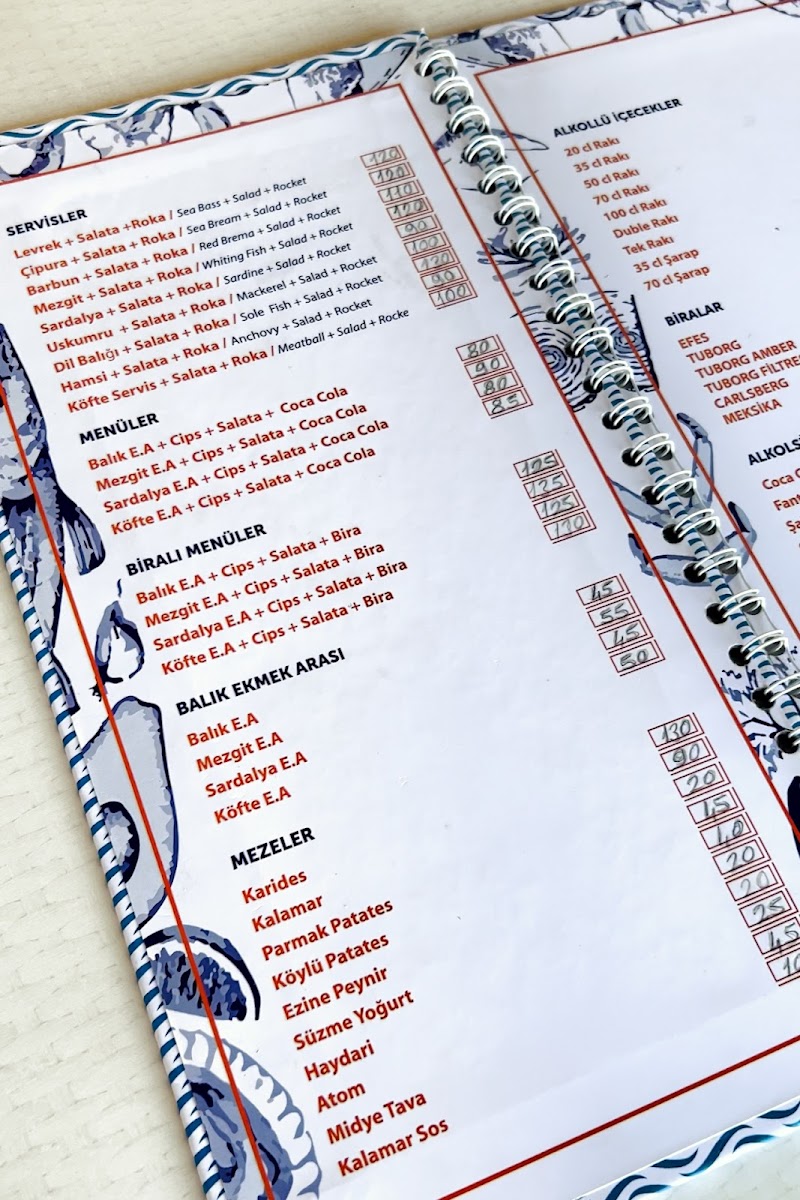 SERVİSLER
Levrek + Salata +Roka / Sea Bass + Salad + Rocket 120
Çipura + Salata + Roka / Sea Bream + Salad + Rocket 120
Barbun + Salata + Roka / Red Brema + Salad + Rocket 110
Mezgit + Salata + Roka / Whiting Fish + Salad + Rocket 120
Sardalya + Salata + Roka / Sardine + Salad + Rocket 90
Uskumru + Salata + Roka / Mackerel + Salad + Rocket 100
Dil Balığı + Salata + Roka / Sole Fish + Salad + Rocket 120
Hamsi + Salata + Roka / Anchovy + Salad + Rocket 90
Köfte Servis + Salata + Roka / Meatball + Salad + Rocke 100
MENÜLER
Balık E.A + Cips + Salata + Coca Cola 80
Mezgit E.A + Cips + Salata + Coca Cola 90
Sardalya E.A + Cips + Salata + Coca Cola 80
Köfte E.A + Cips + Salata + Coca Cola 85
BİRALI MENÜLER
Balık E.A + Cips + Salata + Bira 125
Mezgit E.A + Cips + Salata + Bira 125
Sardalya E.A + Cips + Salata + Bira 125
Köfte E.A + Cips + Salata + Bira
BALIK EKMEK ARASI
Balık E.A 45
Mezgit E.A 55
Sardalya E.A 45
Köfte E.A 50
MEZELER
Karides 130
Kalamar 90
Parmak Patates 20
Köylü Patates 45
Ezine Peynir 40
Süzme Yoğurt 20
Haydari 20
Atom 25
Midye Tava 45
Kalamar Sos 10
ALKOLLÜ İÇECEKLER
20 cl Rakı
35 cl Rakı
50 cl Rakı
70 cl Rakı
100 cl Rakı
Duble Rakı
Tek Rakı
35 cl Şarap
70 cl Şarap
BİRALAR
EFES
TUBORG
TUBORG AMBER
TUBORG FİLTRE
CARLSBERG
MEKSİKA
ALKOLS
Coca
Fant
Şa